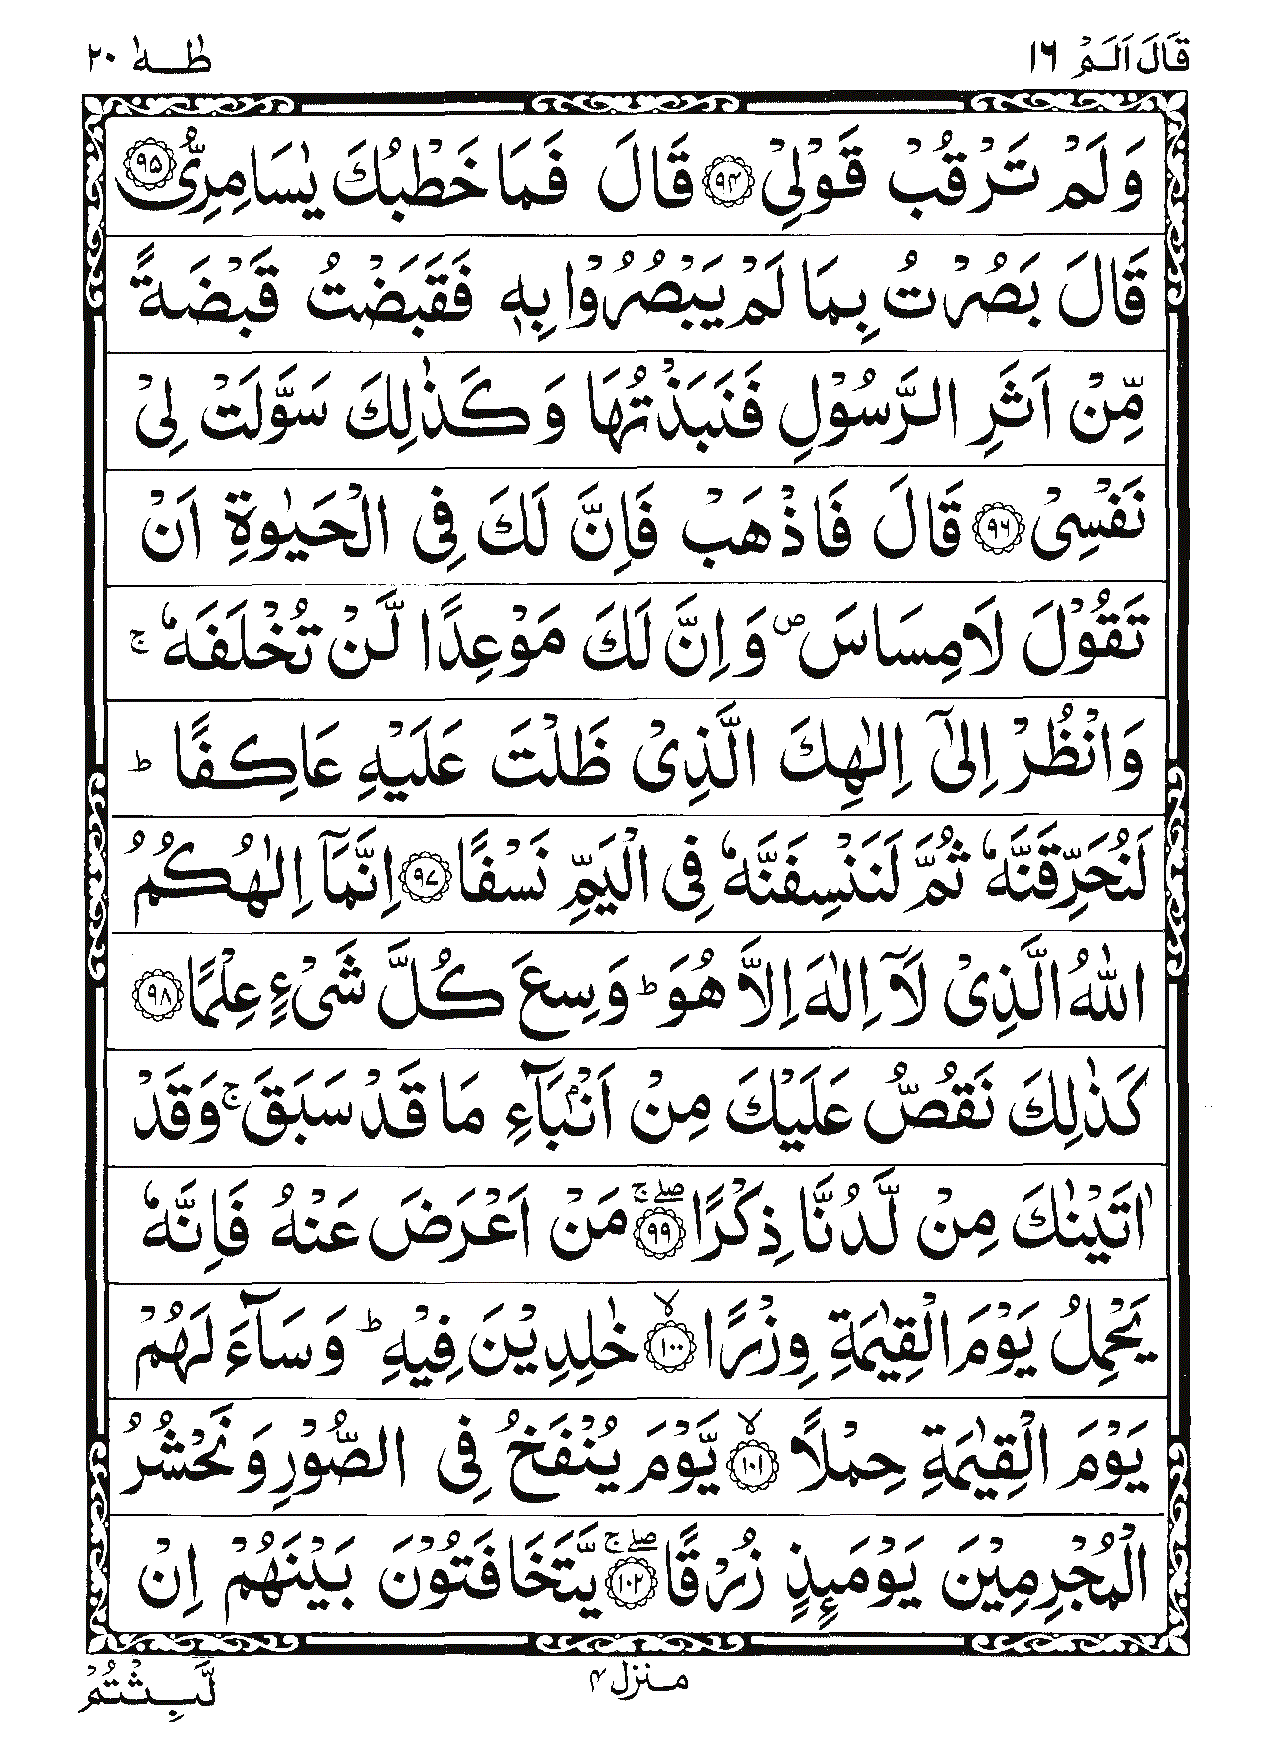 قَالَ اَلَمْ ١٦
طٰهٰ ٢٠
وَلَمْ تَرْقُبْ قَوْلِیْ ﴿٩٤﴾ قَالَ فَمَا خَطْبُكَ یٰسَامِرِیُّ ﴿٩٥﴾
قَالَ بَصُرْتُ بِمَا لَمْ یَبْصُرُوْا بِهٖ فَقَبَضْتُ قَبْضَةً
مِّنْ اَثَرِ الرَّسُوْلِ فَنَبَذْتُهَا وَكَذٰلِكَ سَوَّلَتْ لِیْ
نَفْسِیْ ﴿٩٦﴾ قَالَ فَاذْهَبْ فَاِنَّ لَكَ فِی الْحَیٰوةِ اَنْ
تَقُوْلَ لَا مِسَاسَ ۪ وَاِنَّ لَكَ مَوْعِدًا لَّنْ تُخْلَفَهٗ ۚ
وَانْظُرْ اِلٰۤی اِلٰهِكَ الَّذِیْ ظَلْتَ عَلَیْهِ عَاكِفًا ؕ
لَنُحَرِّقَنَّهٗ ثُمَّ لَنَنْسِفَنَّهٗ فِی الْیَمِّ نَسْفًا ﴿٩٧﴾ اِنَّمَاۤ اِلٰهُكُمُ
اللّٰهُ الَّذِیْ لَاۤ اِلٰهَ اِلَّا هُوَ ؕ وَسِعَ كُلَّ شَیْءٍ عِلْمًا ﴿٩٨﴾
كَذٰلِكَ نَقُصُّ عَلَیْكَ مِنْ اَنْۢبَآءِ مَا قَدْ سَبَقَ ۚ وَقَدْ
اٰتَیْنٰكَ مِنْ لَّدُنَّا ذِكْرًا ﴿٩٩﴾ۖۚ مَنْ اَعْرَضَ عَنْهُ فَاِنَّهٗ
یَحْمِلُ یَوْمَ الْقِیٰمَةِ وِزْرًا ﴿١٠٠﴾ۙ خٰلِدِیْنَ فِیْهِ ؕ وَسَآءَ لَهُمْ
یَوْمَ الْقِیٰمَةِ حِمْلًا ﴿١٠١﴾ۙ یَّوْمَ یُنْفَخُ فِی الصُّوْرِ وَنَحْشُرُ
الْمُجْرِمِیْنَ یَوْمَىِٕذٍ زُرْقًا ﴿١٠٢﴾ۖۚ یَّتَخَافَتُوْنَ بَیْنَهُمْ اِنْ
منزل ٤
لَّبِثْتُمْ